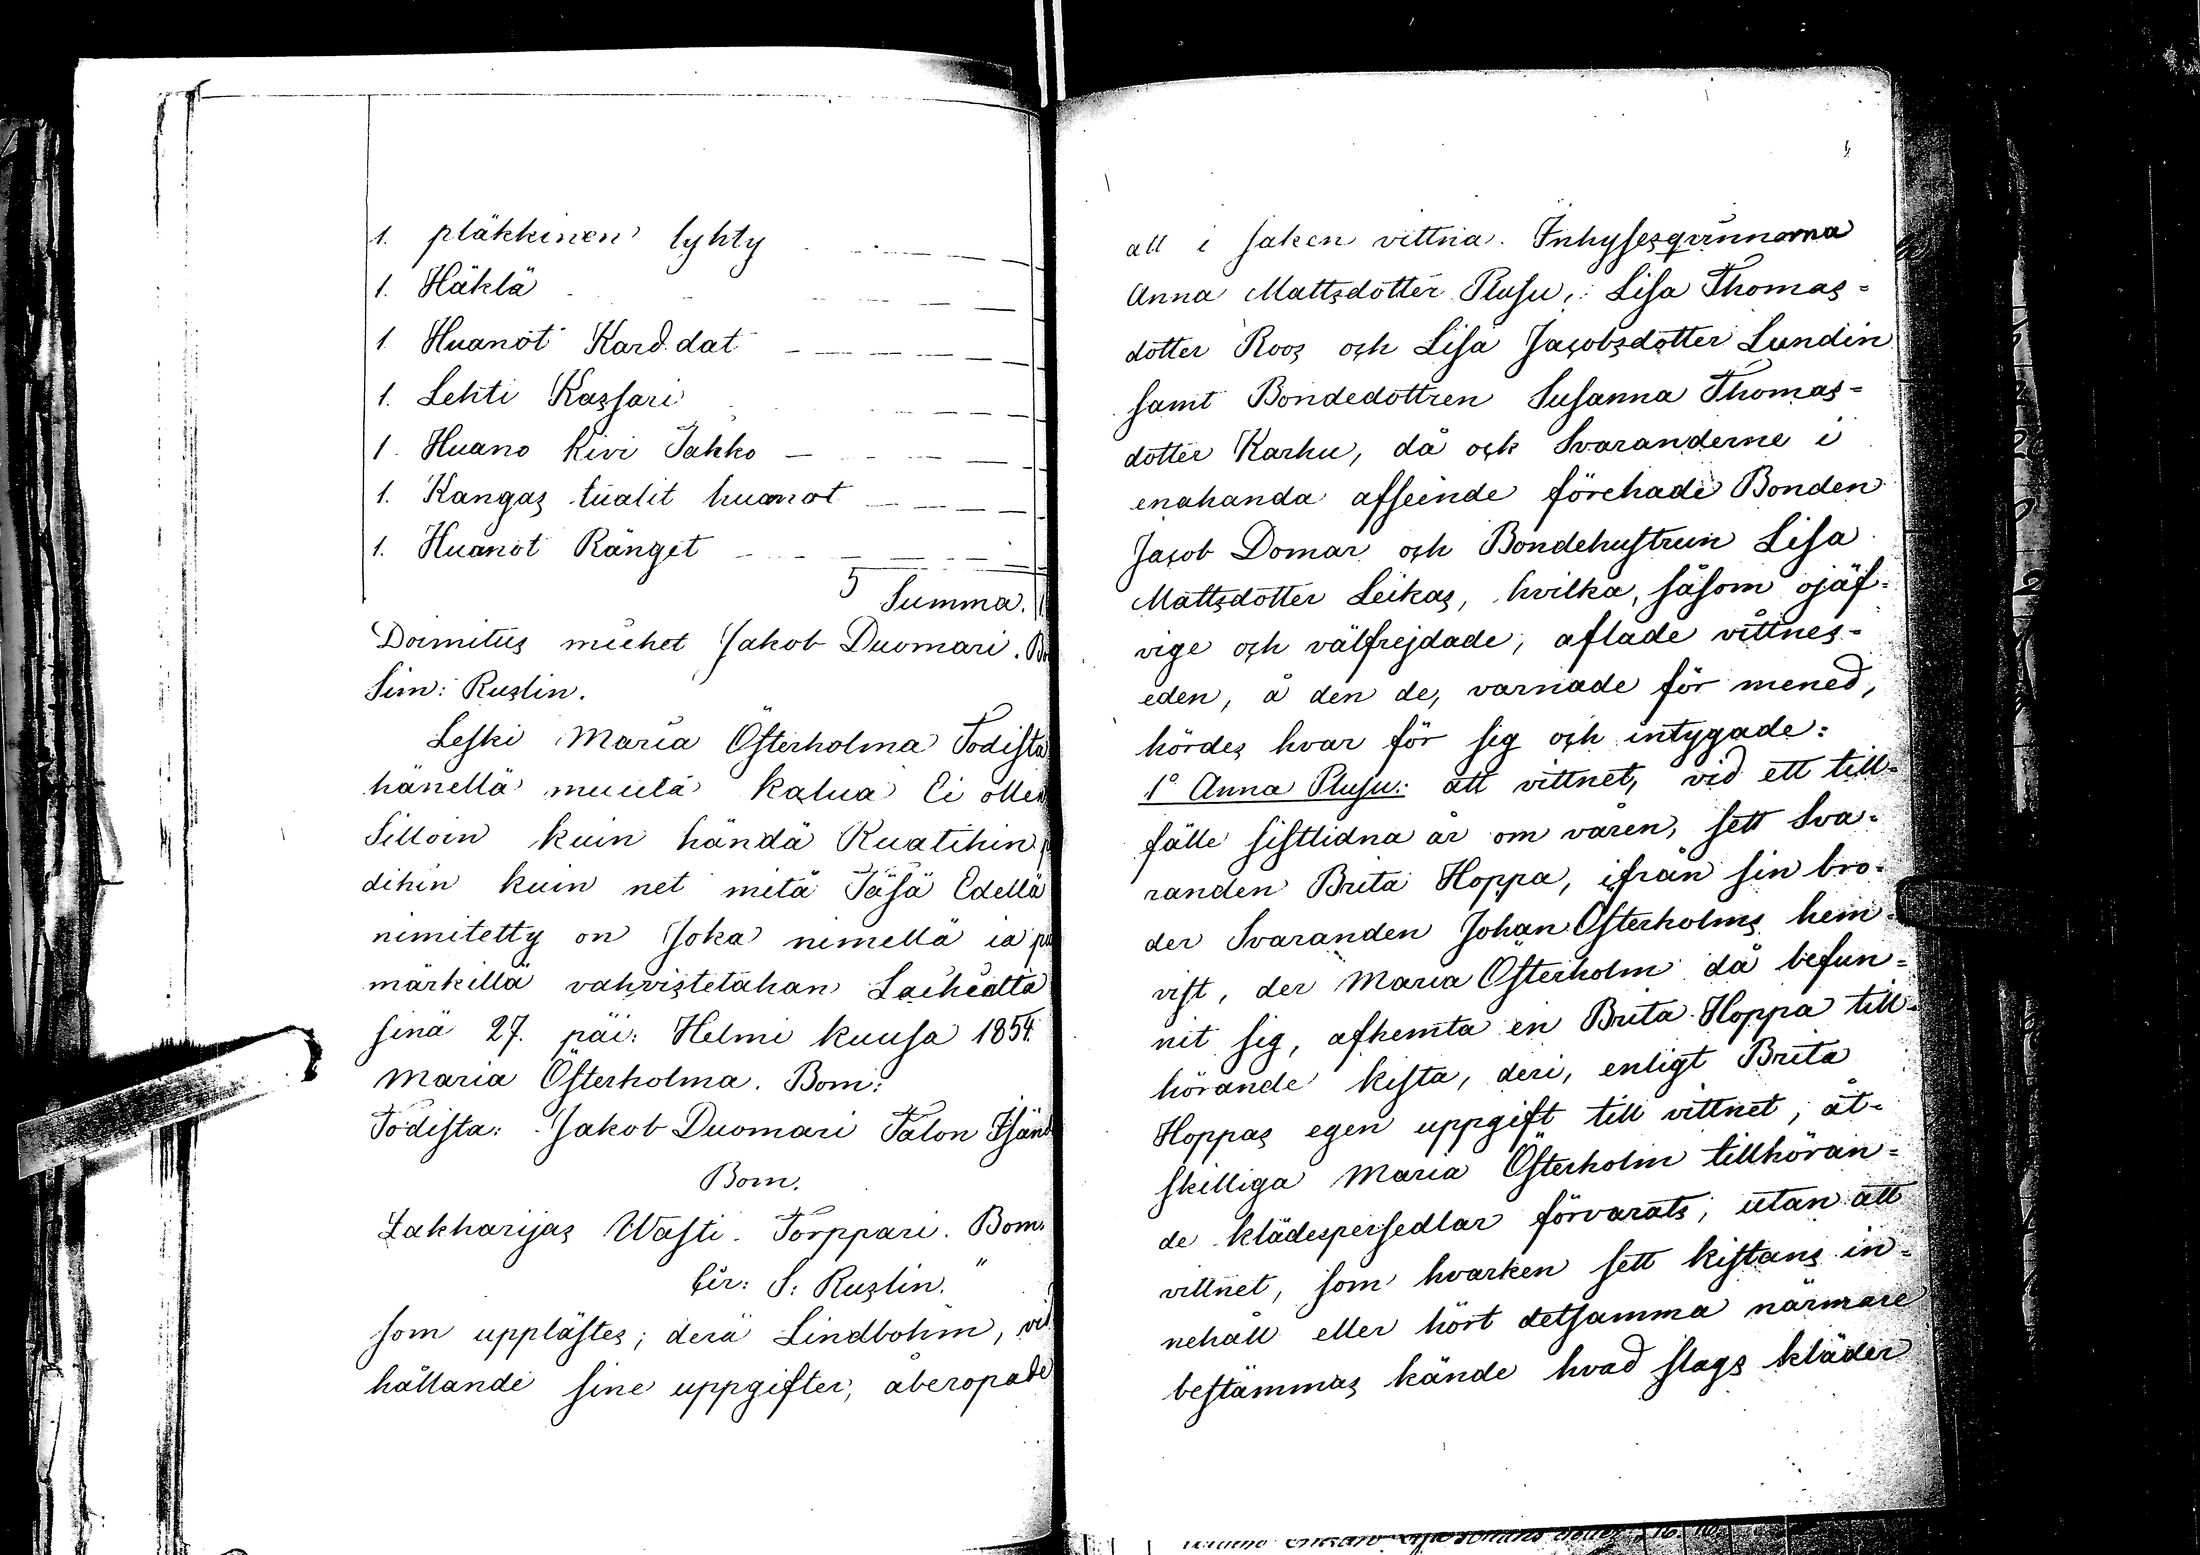 1. pläkkinen lyhty
1. Häklä
1 Huanot Karddat
1. Lehti Kassari
1. Huano kivi Jakko
1. Kangas tualit huanot
1. Huanot Ränget
Summa.
Doimitus miehet Jakob Duomari.
Sim: Ruslin.
Leski Maria Österholma Todista
hänellä muuta kalua Ei ollen
Silloin kuin händä Ruatihin
dihin kuin net mitä Täsä Edellä
nimitetty on Joka nimellä ia
märkillä vahvistetahan Laihialla
sinä 27. päi: Helmi kuusa 1854.
Maria Österholma. Bom:
Todista: Jakob Duomari Talon Isänd
Bom.
Zakharijas Wasti. Torppari. Bom.
Cir: S: Ruslin."
som upplästes; derå Lindbohm, vid
hållande sine uppgifter, åberopade
att i saken vittna. Inhysesqvinnorna
Anna Mattsdotter Plusu, Lisa Thomas=
dotter Roos och Lisa Jacobsdotter Lundin
samt Bondedottren Susanna Thomas=
dotter Karhu, då ock Svaranderne i
enahanda afseende förehade Bonden
Jacob Domar och Bondehustrun Lisa
Mattsdotter Leikas, hvilka, såsom ojäf=
vige och välfrejdade, aflade vittnes=
eden, å den de, varnade för mened,
hördes hvar för sig och intygade:
1° Anna Plusu: att vittnet, vid ett till=
fälle sistlidna år om våren, sett Sva=
randen Brita Hoppa, ifrån sin bro=
der Svaranden Johan Österholms hem=
vist, der Maria Österholm då befun=
nit sig, afhemta en Brita Hoppa till=
hörande kista, deri, enligt Brita
Hoppas egen uppgift till vittnet, åt=
skilliga Maria Österholm tillhöran=
de klädespersedlar förvarats, utan att
vittnet, som hvarken sett kistans in=
nehåll eller hört detsamma närmare
bestämmas kände hvad slags kläder